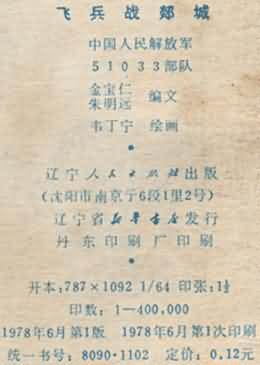 飞兵战郯城
中国人民解放军
51033部队
金宝仁
朱明远 编文
韦丁宁 绘画
辽宁人民出版社出版
(沈阳市南京街6段1里2号)
辽宁省新华书店发行
丹东印刷厂印刷
开本:787×1092 1/64 印张:1½
印数:1—400,000
1978年6月第1版 1978年6月第1次印刷
统一书号:8090·1102 定价:0.12元